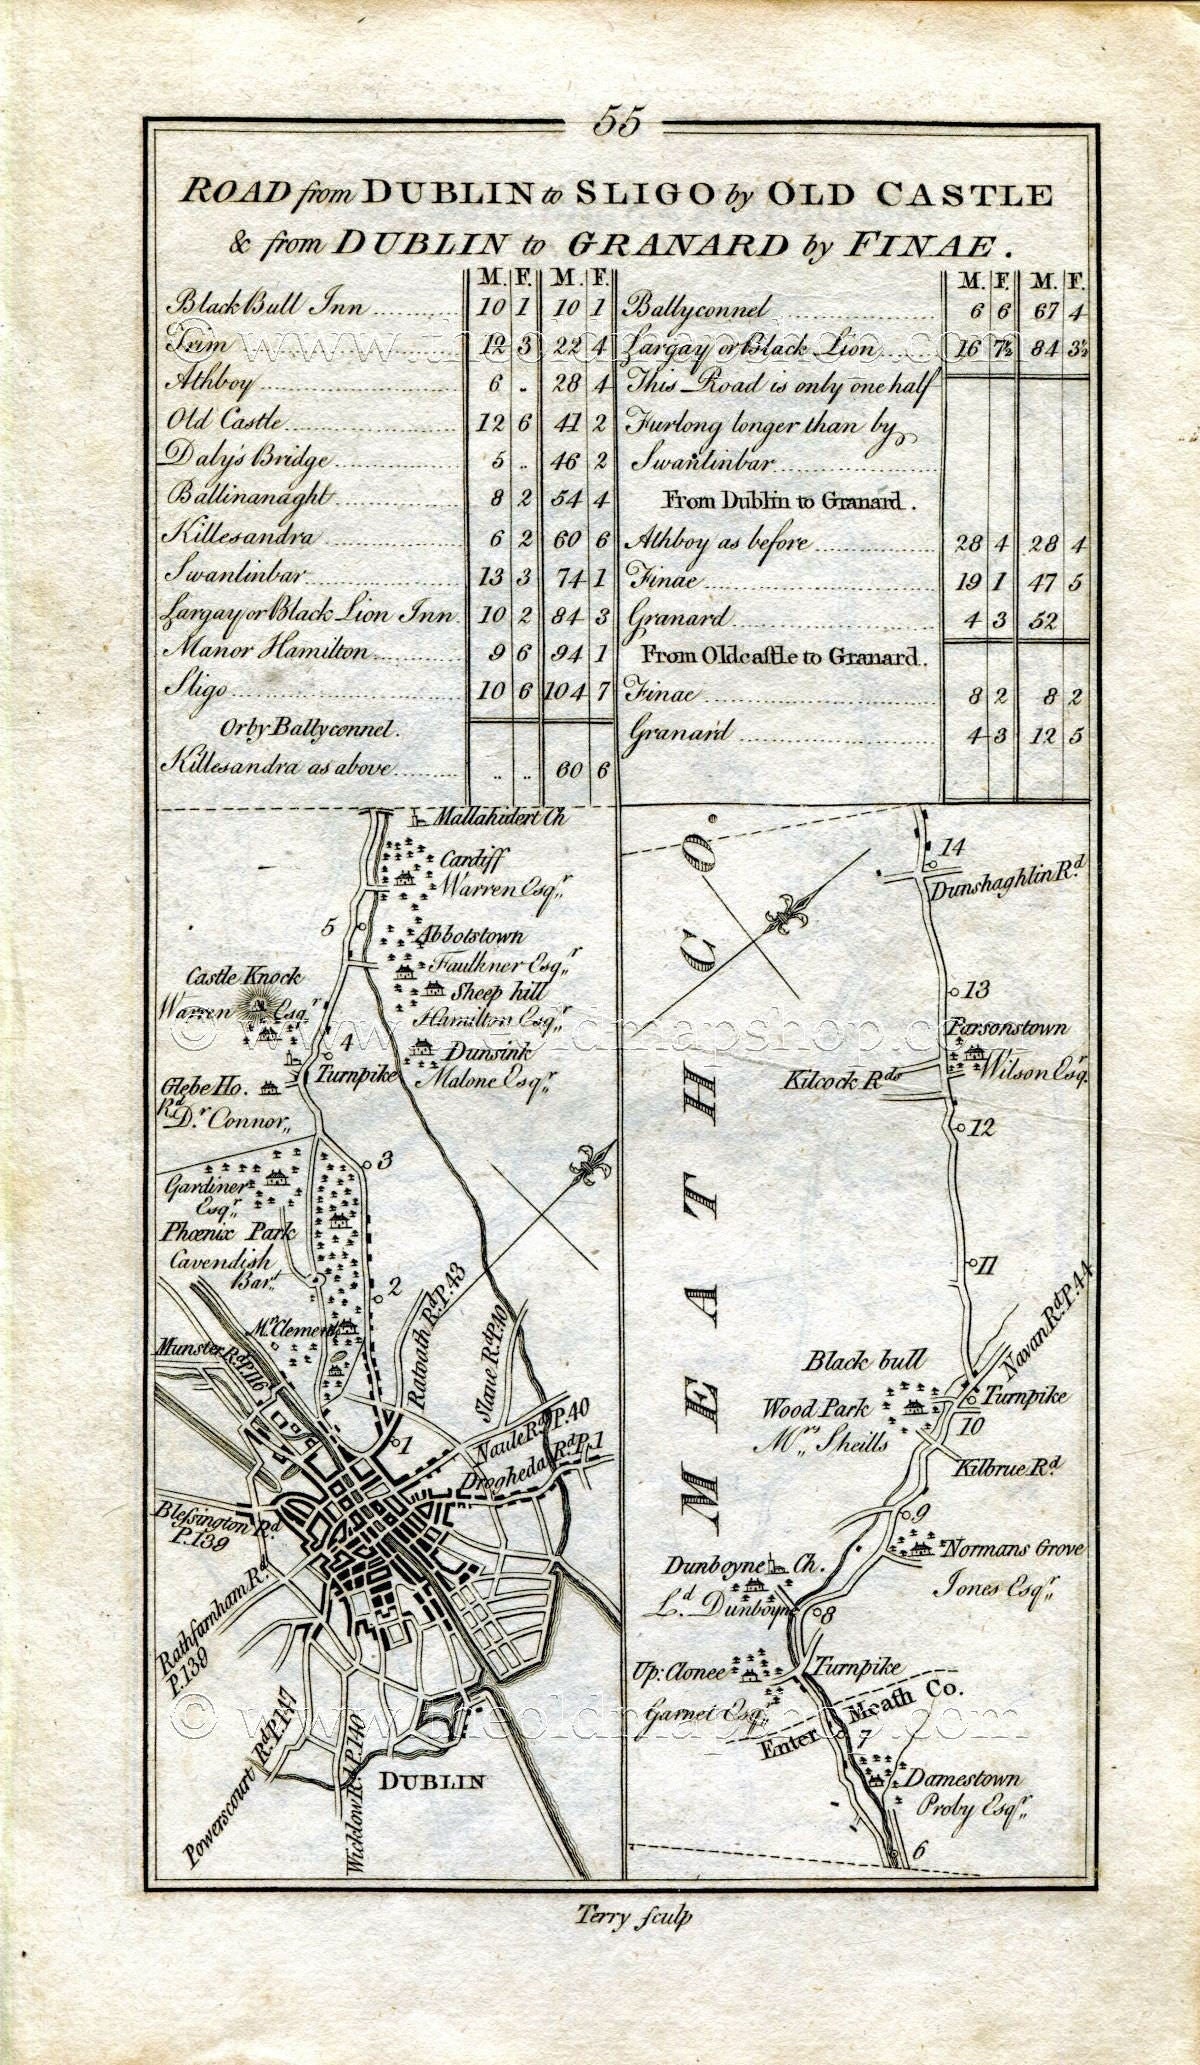 55
ROAD from DUBLIN to SLIGO by OLD CASTLE
& from DUBLIN to GRANARD by FINAE.
M. F. M. F.
Black Bull Inn 10 1 10 1
Trim 12 3 22 4
Athboy 6 .. 28 4
Old Castle 12 6 41 2
Daly's Bridge 5 .. 46 2
Ballinanaght 8 2 54 4
Killesandra 6 2 60 6
Swanlinbar 13 3 74 1
Largay or Black Lion Inn 10 2 84 3
Manor Hamilton 9 6 94 1
Sligo 10 6 104 7
Or by Ballyconnel.
Killesandra as above .. .. 60 6
M. F. M. F.
Ballyconnel 6 6 67 4
Largay or Black Lion 16 7½ 84 3½
This Road is only one half
Furlong longer than by
Swanlinbar
From Dublin to Granard.
Athboy as before 28 4 28 4
Finae 19 1 47 5
Granard 4 3 52
From Oldcastle to Granard.
Finae 8 2 8 2
Granard 4 3 12 5
Mallahidert Ch
Cardiff
Warren Esqr.
5
Abbotstown
Faulkner Esqr.
Castle Knock
Warren Esqr
Sheep hill
Hamilton Esqr.
4
Turnpike
Dunsink
Malone Esqr.
Glebe Ho.
Rd Dr. Connor
3
Gardiner
Esqr.
Phœnix Park
Cavendish
Bart
2
Mr Clements
Ratoath Rd P.43
Slane Rd P.40
Munster Rd P.116
1
Naule Rd P.40
Drogheda Rd P.1
Blessington Rd
P.139
Rathfarnham Rd
P.139
Powerscourt Rd P.147
Wicklow Rd P.140
DUBLIN
MEATH CO.
14
Dunshaghlin Rd
13
Parsonstown
Wilson Esqr.
Kilcock Rds
12
11
Navan Rd P.44
Black bull
Turnpike
Wood Park
Mrs Sheills
10
Kilbrue Rd
9
Normans Grove
Jones Esqr.
Dunboyne Ch.
Ld. Dunboyne
8
Up: Clonee
Garnet Esqr.
Turnpike
Enter Meath Co.
7
Damestown
Proby Esqr.
6
Terry sculp
© www.theoldmapshop.com
© www.theoldmapshop.com
© www.theoldmapshop.com